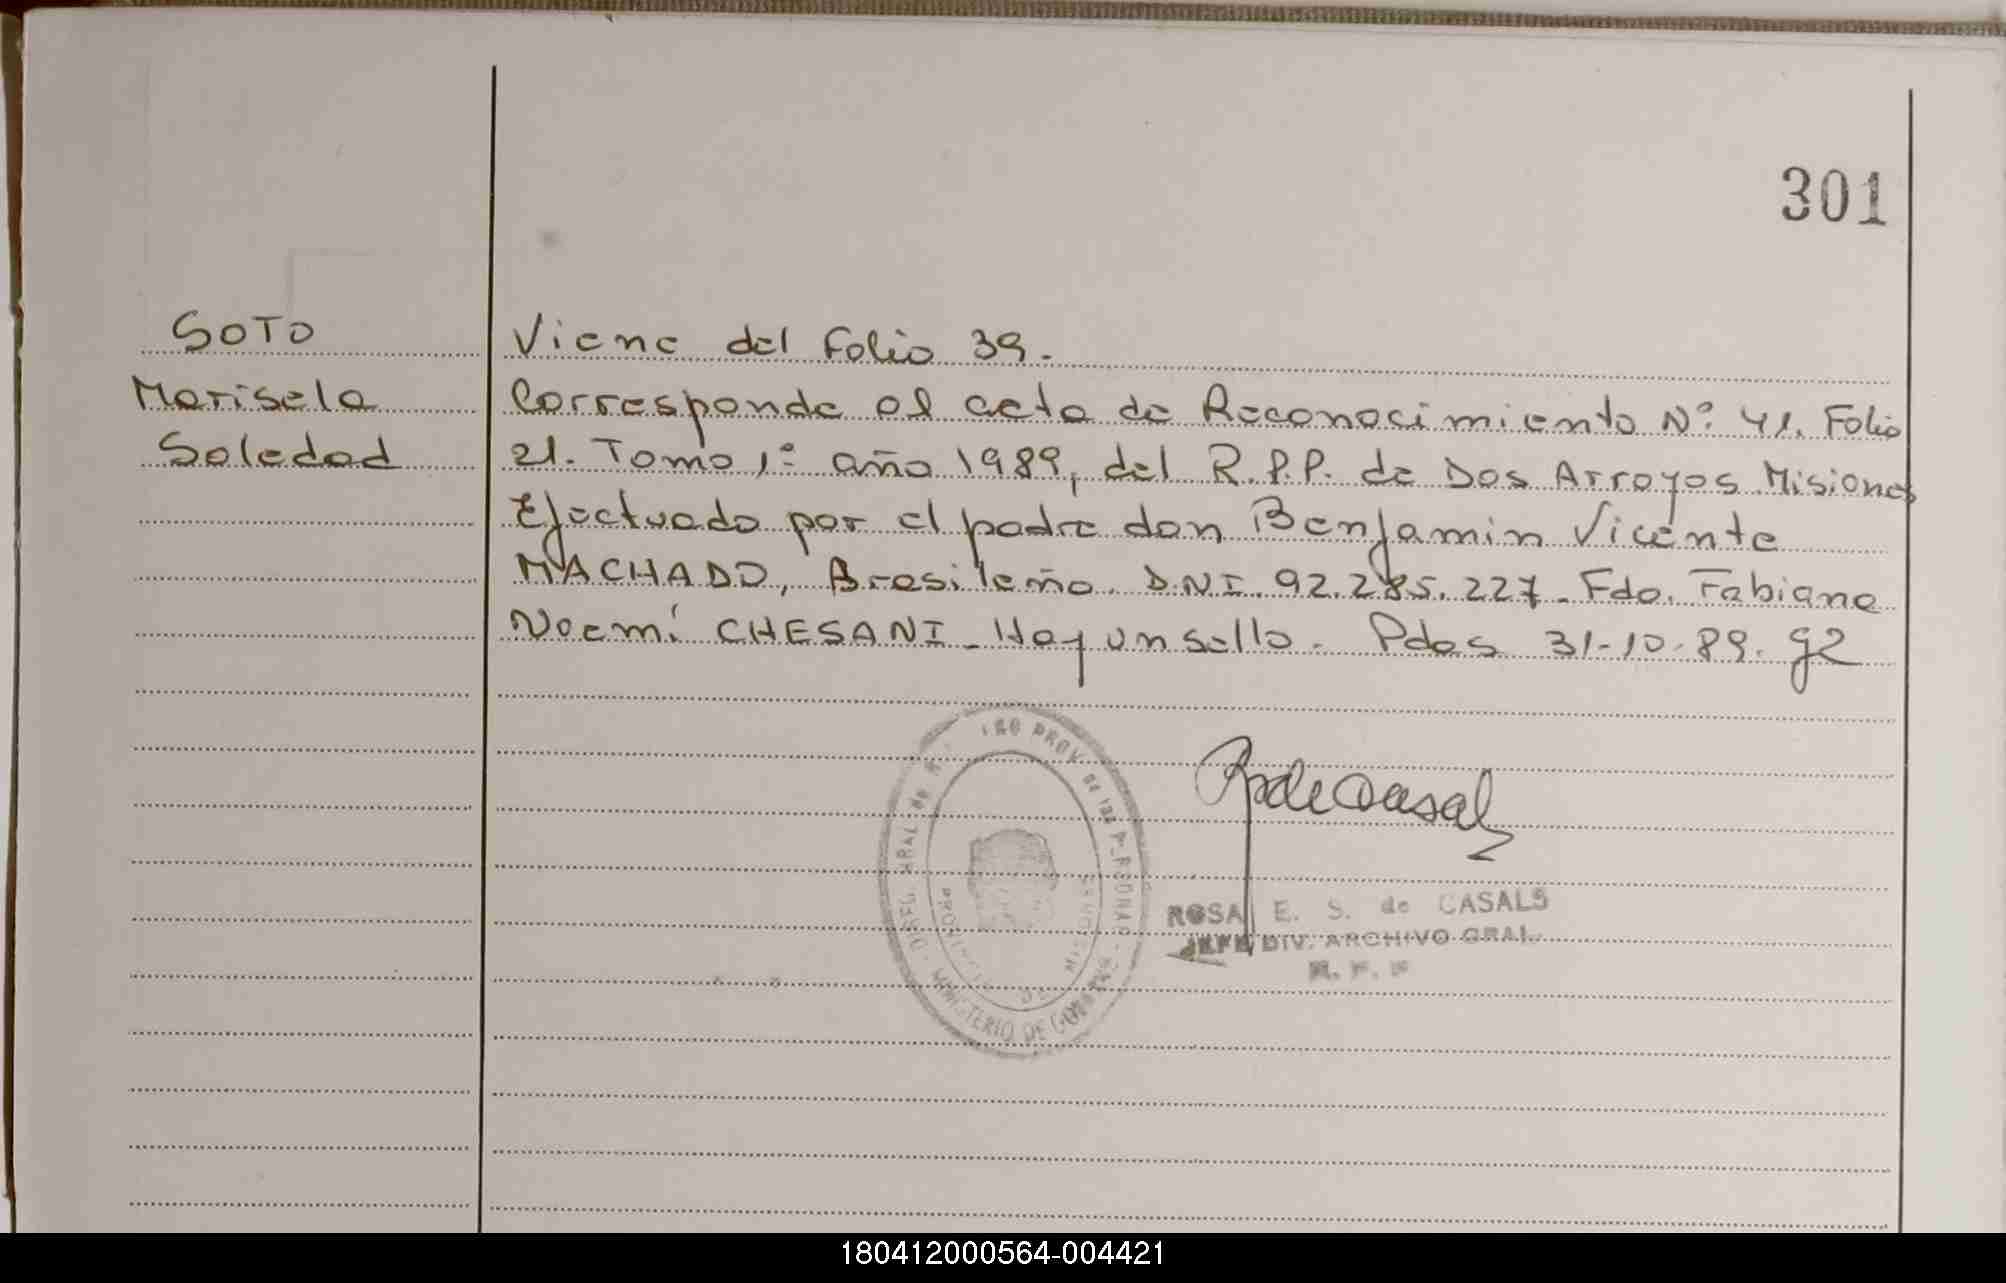 301
SOTO
Marisela
Soledad
Viene del Folio 39.
Corresponde al acta de Reconocimiento Nº 41. Folio
21. Tomo 1º año 1989, del R.P.P. de Dos Arroyos Misiones
Efectuado por el padre don Benjamin Vicente
MACHADO, Brasileño. D.N.I. 92.285.227. Fdo. Fabiana
Noemí CHESANI. Hay un sello. Pdas 31-10-89.
ROSA E. S. de CASALS
JEFE DIV. ARCHIVO GRAL.
PROV de las
MINISTERIO DE
PROVINCIA DE MISIONES
180412000564-004421